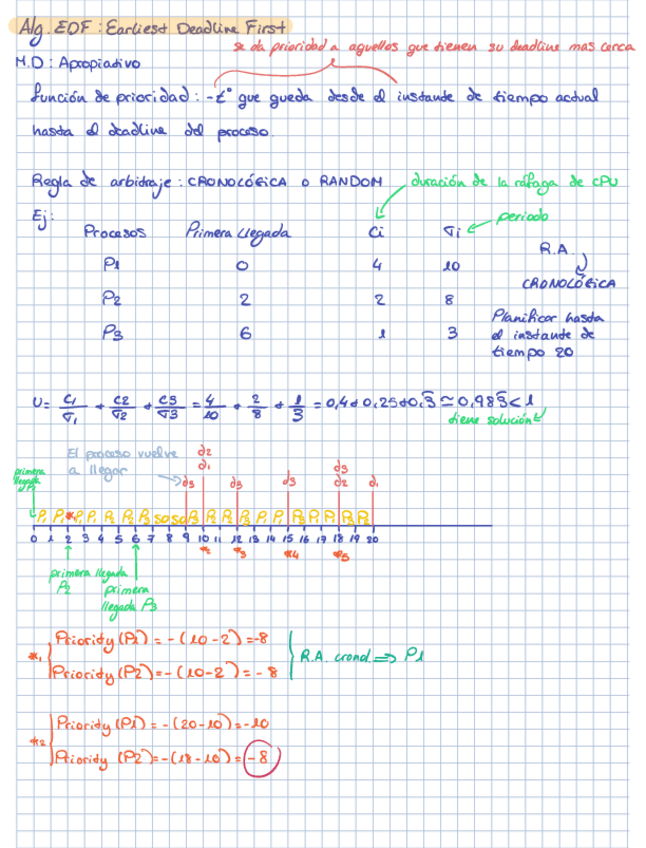 Alg. EDF : Earliest Deadline First
se da prioridad a aquellos que tienen su deadline mas cerca
M.D : Apropiativo
función de prioridad : -t° que queda desde el instante de tiempo actual
hasta el deadline del proceso.
Regla de arbitraje : CRONOLÓGICA o RANDOM
duración de la ráfaga de CPU
Ej:
periodo
Procesos Primera llegada Ci Ti
R.A.
P1 0 4 10
CRONOLÓGICA
P2 2 2 8
Planificar hasta
P3 6 1 3
el instante de
tiempo 20
U= C1/T1 + C2/T2 + C3/T3 = 4/10 + 2/8 + 1/3 = 0,4+0,25+0,3 ≃ 0,983 < 1
tiene solución
El proceso vuelve
a llegar
primera
llegada P1
d3 d2 d1 d3 d3 d3 d2 d1
0 1 2 3 4 5 6 7 8 9 10 11 12 13 14 15 16 17 18 19 20
*2 *3 *4 *5
primera llegada
P2
primera
llegada P3
*1 Priority (P1) = -(10-2) = -8
Priority (P2) = -(10-2) = -8
R.A. cronol. => P1
*2 Priority (P1) = -(20-10) = -10
Priority (P2) = -(18-10) = -8